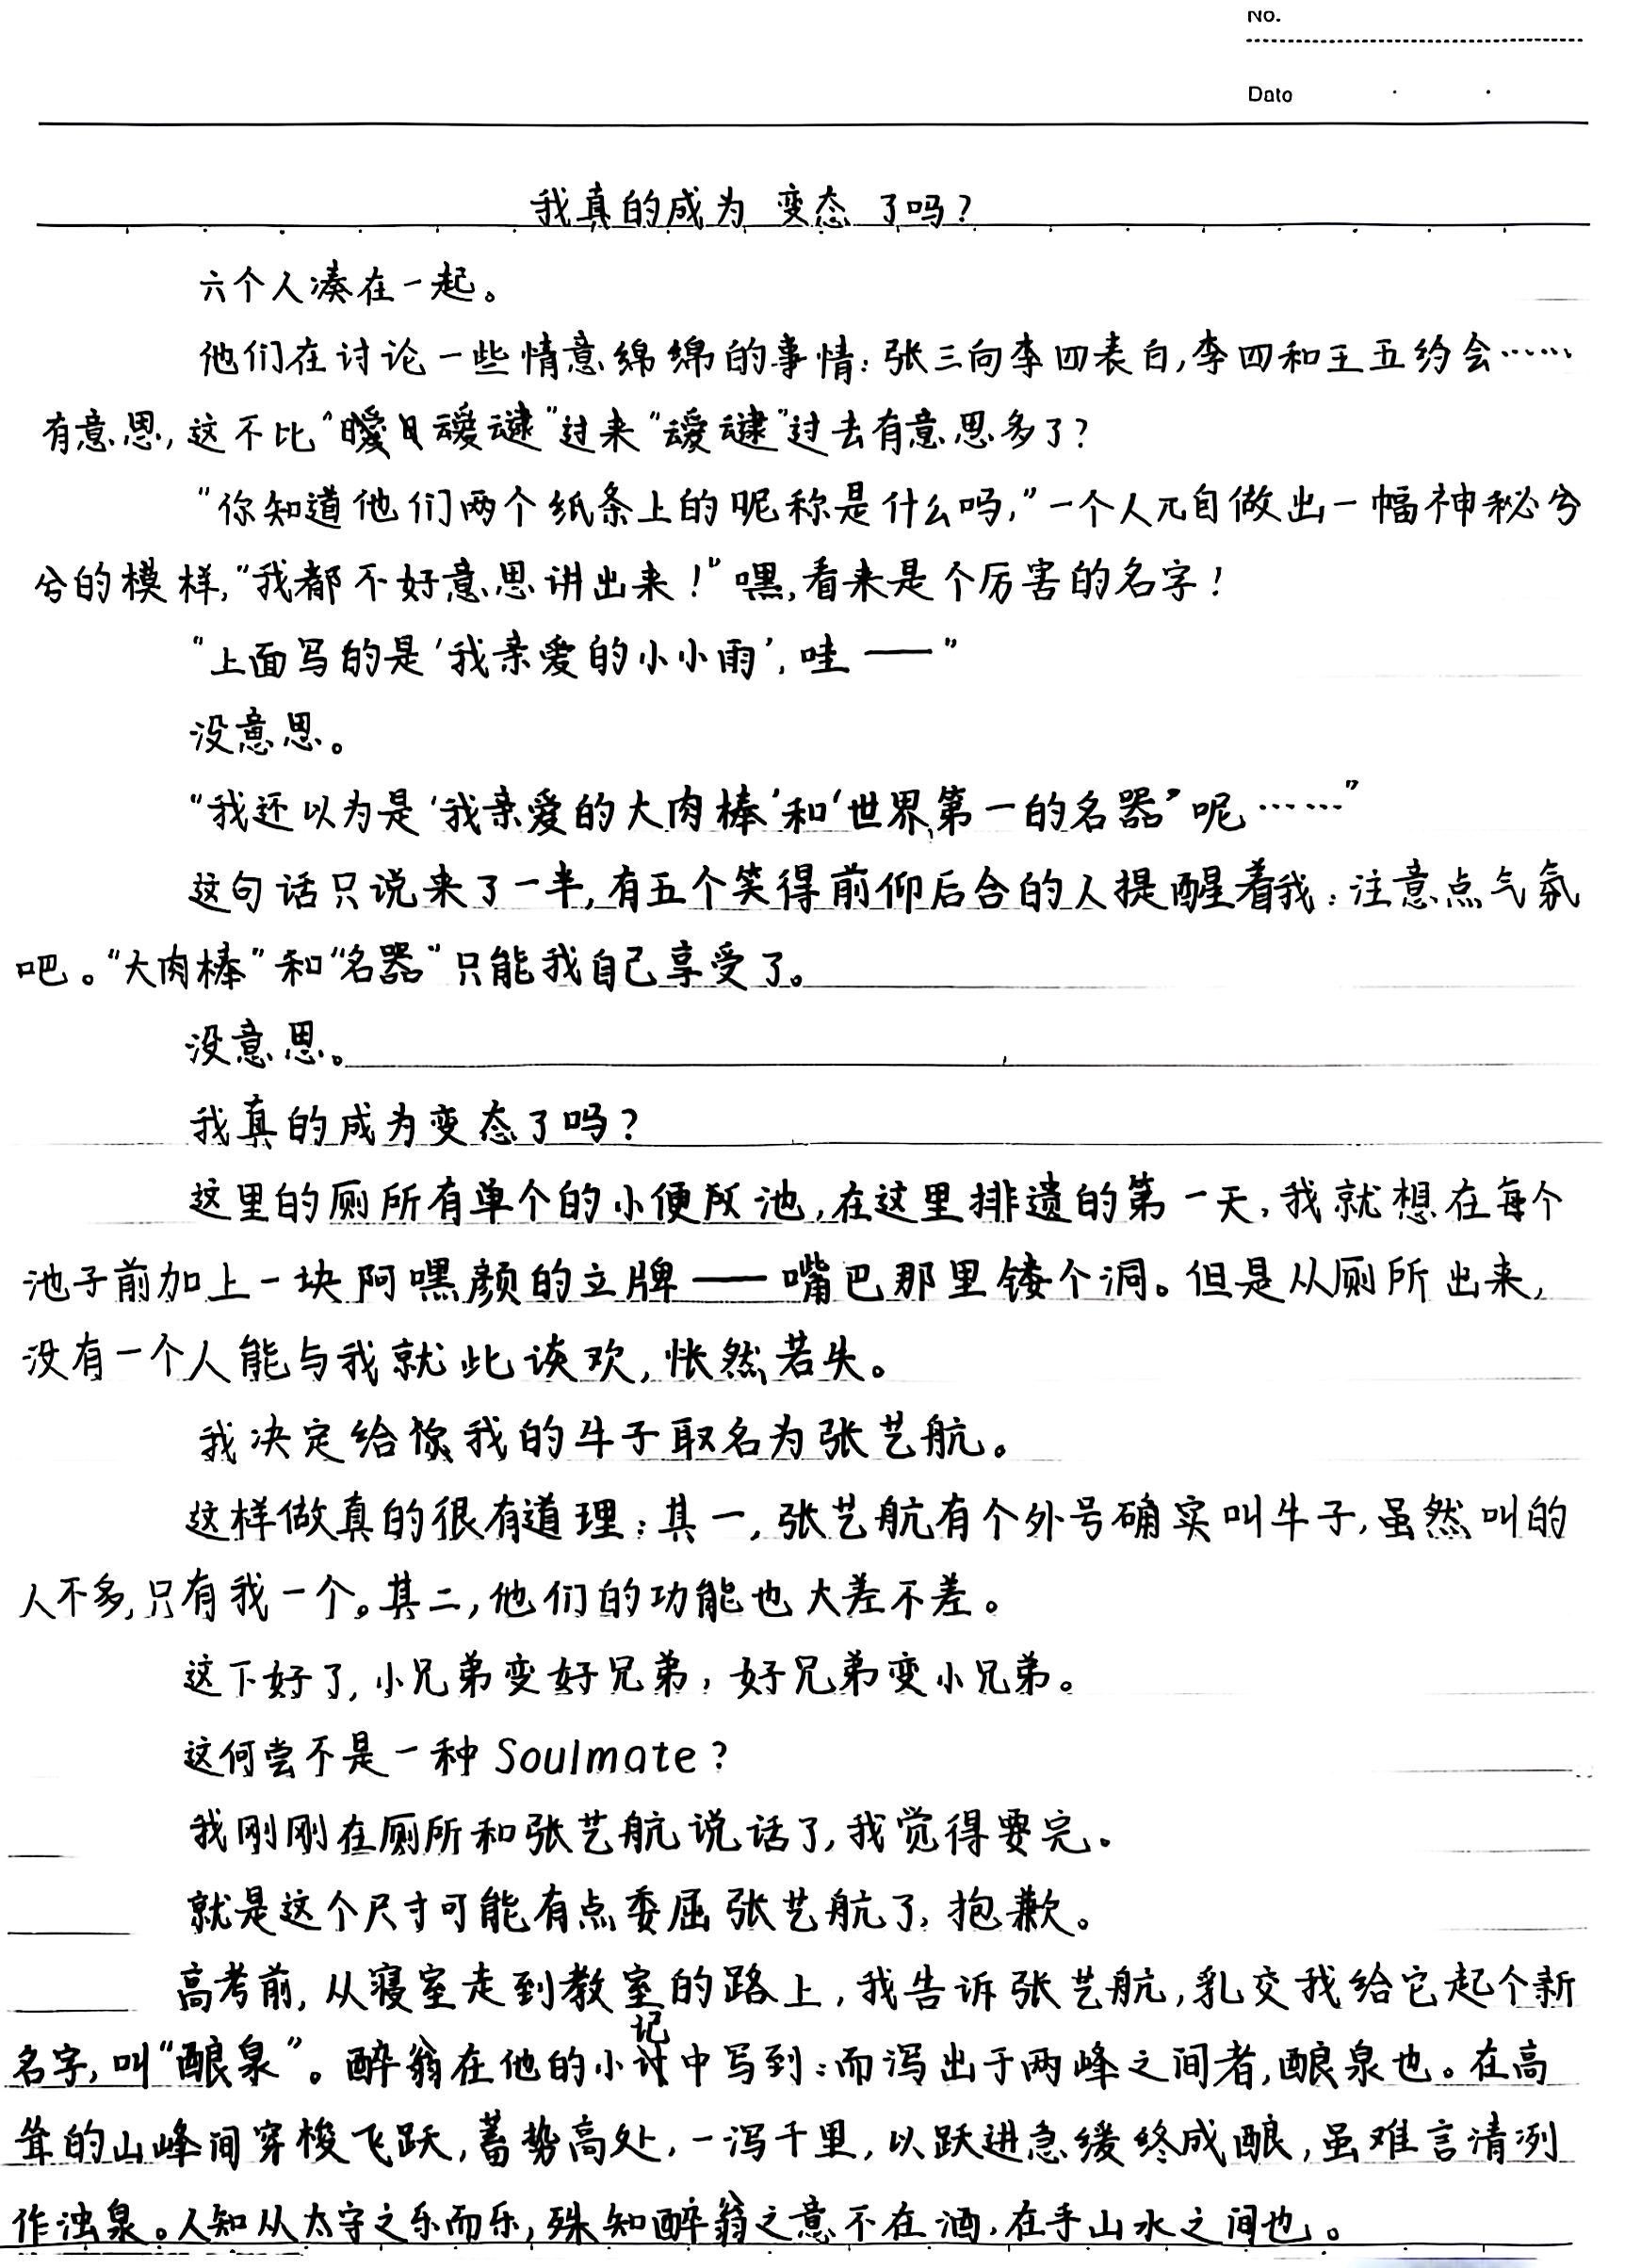 No.
Date
我真的成为 变态 了吗？
六个人凑在一起。
他们在讨论一些情意绵绵的事情：张三向李四表白，李四和王五约会……
有意思，这不比“叆叇”过来“叆叇”过去有意思多了？
“你知道他们两个纸条上的昵称是什么吗，”一个人兀自做出一幅神秘兮
兮的模样，“我都不好意思讲出来！”嘿，看来是个厉害的名字！
“上面写的是‘我亲爱的小小雨’，哇——”
没意思。
“我还以为是‘我亲爱的大肉棒’和‘世界第一的名器’呢……”
这句话只说来了一半，有五个笑得前仰后合的人提醒着我：注意点气氛
吧。“大肉棒”和“名器”只能我自己享受了。
没意思。
我真的成为变态了吗？
这里的厕所有单个的小便池，在这里排遗的第一天，我就想在每个
池子前加上一块阿嘿颜的立牌——嘴巴那里镂个洞。但是从厕所出来，
没有一个人能与我就此谈欢，怅然若失。
我决定给我的牛子取名为张艺航。
这样做真的很有道理：其一，张艺航有个外号确实叫牛子，虽然叫的
人不多，只有我一个。其二，他们的功能也大差不差。
这下好了，小兄弟变好兄弟，好兄弟变小兄弟。
这何尝不是一种 Soulmate？
我刚刚在厕所和张艺航说话了，我觉得要完。
就是这个尺寸可能有点委屈张艺航了，抱歉。
高考前，从寝室走到教室的路上，我告诉张艺航，乳交我给它起个新
名字，叫“酿泉”。醉翁在他的小记中写到：而泻出于两峰之间者，酿泉也。在高
耸的山峰间穿梭飞跃，蓄势高处，一泻千里，以跃进急缓终成酿，虽难言清冽
作浊泉。人知从太守之乐而乐，殊知醉翁之意不在酒，在乎山水之间也。